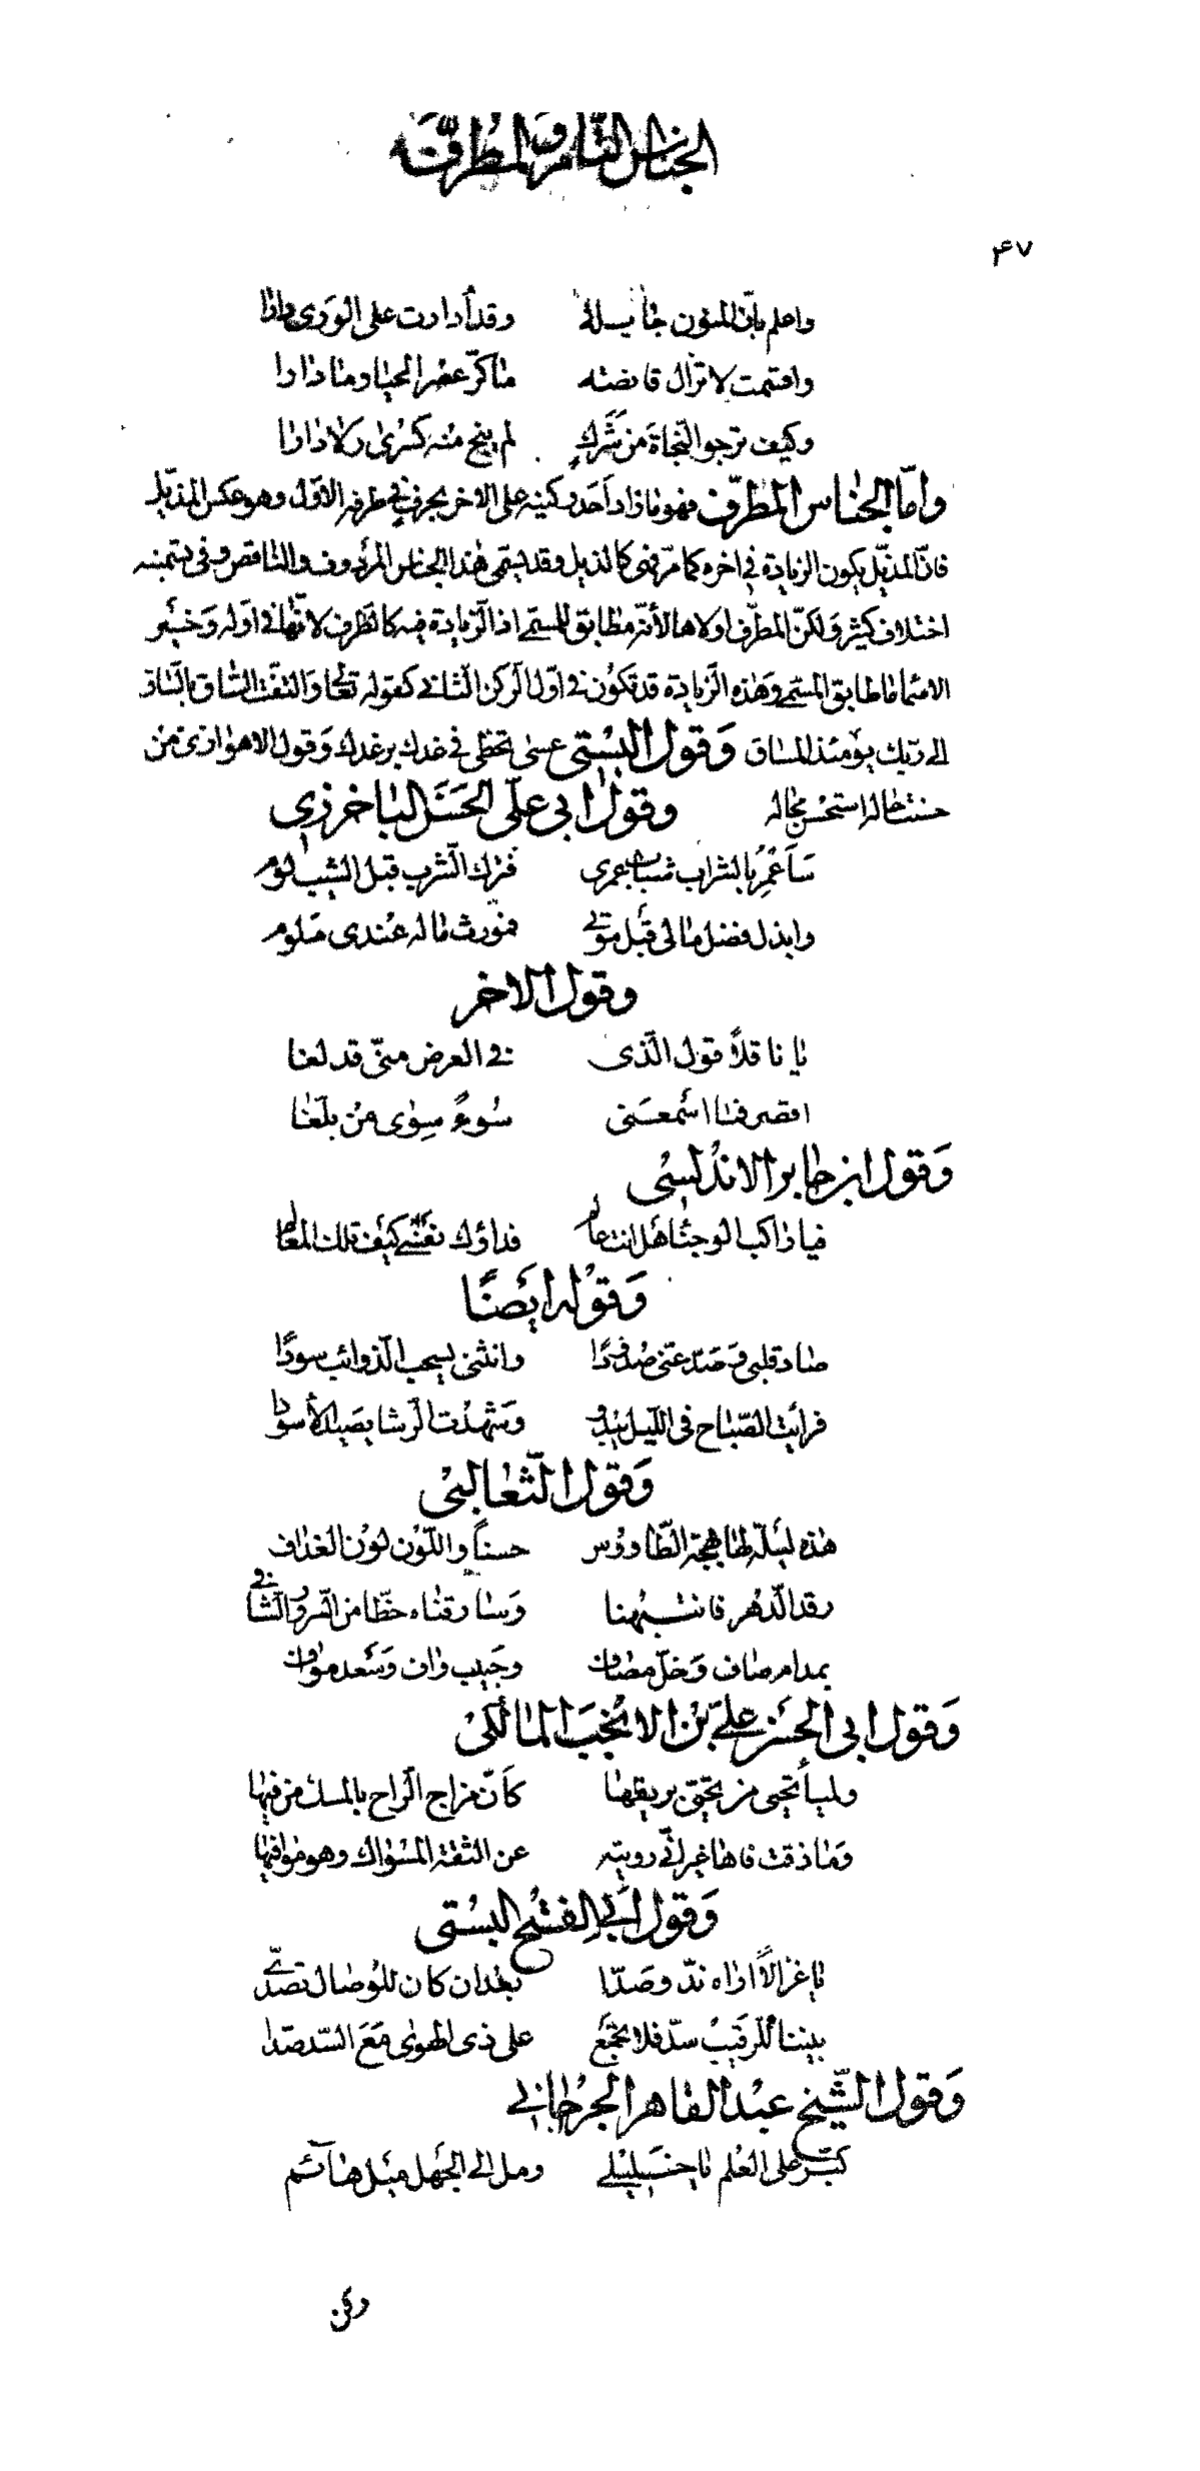 الجناس التام والمطرف
۴۷
واعلم بانّ المنون جائلة وقد أدارت على الورى دارا
واقسمت لا تزال قانصة ماكرّ عصر المحيا وما دارا
وكيف ترجو النجاة من شرك لم ينج منه كسرى ولا دارا
وامّا الجناس المطرّف فهو ما زاد احد ركنيه على الاخر بحرف في طرفه الاوّل وهو عكس المذيّل
فانّ المذيّل يكون الزيادة في اخره كما مرّ فهي كالذيل وقد يسمّى هذا الجناس المردوف والناقص وفى تسمیته
اختلاف كثير ولكنّ المطرّف اولاها لأنّه مطابق للمسمّى اذ الزيادة فيه كالطرف لانّها في اوّله وخير
الاسماء ما طابق المسمّى وهذه الزيادة قد تكون في اوّل الركن الثاني كقوله تعالى والتفّت الساق بالساق
الى ربّك يومئذ المساق وقول البستي عسى تحظى في غدك برغدك وقول الاهوازى من
حسنت حاله استحسن محاله وقول ابى علّى الحسن الباخرزي
سأعمر بالشراب شباب عمرى فترك الشرب قبل الشيب لوم
وابذل فضل مالى قبل موتى فمورث ماله عندى ملوم
وقول الاخر
يا ناقلاً قول الّذى في العرض منّى قد لغا
اقصر فما اسمعنى سوءً سوى من بلّغا
وقول ابن جابر الاندلسي
فيا راكب الوجناء هل انت عالم فداؤك نفسي كيف تلك المعالم
وقوله ايضًا
صاد قلبى وصدّ عنّى صدودًا وانثنى يسحب الذوائب سودًا
فرأيت الصّباح في الليل يبدو وشهدت الرشا يصيد الأسودا
وقول الثعالبي
هذه ليلة لها بهجة الطّاووس حسناً واللّون لون الغداف
رقد الدّهر فانتبهنا وسارقناه حظّا من السرور الشافي
بمدام صاف وخلّ مصاف وحبيب واف وسعد مواف
وقول ابى الحسن علي بن الانجب المالكي
ولمياء تحيى من تحيّى بريقها كأنّ مزاج الراح بالمسك من فيها
وما ذقت فاها غير انّي رويته عن الثقة المسواك وهو موافيها
وقول أبي الفتح البستي
يا غزالاً اراه ندّ وصدّا بعدان كان للوصال تصدّى
بيننا للرقيب سدّ فلا تجمع على ذى الهوى مع السدّ صدّا
وقول الشيخ عبد القاهر الجرجاني
كبّر على العلم يا خليلي ومل الى الجهل ميل هائم
وكن